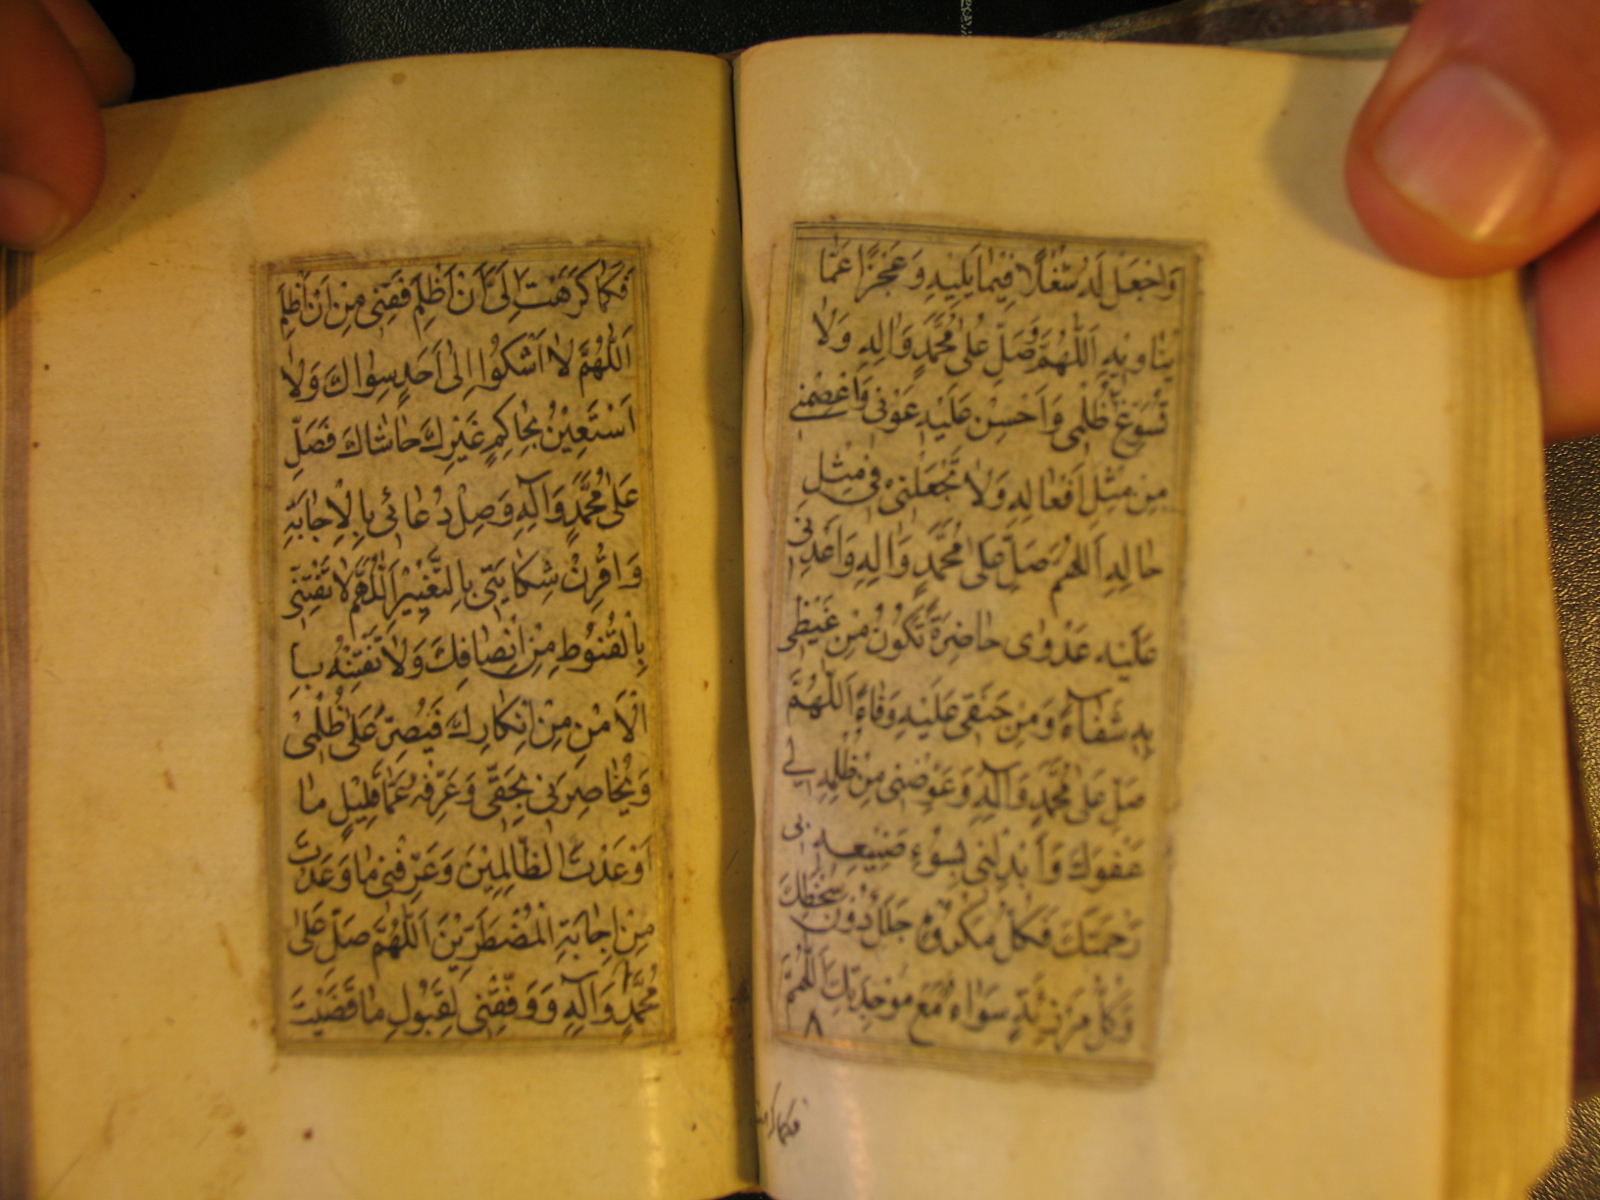 وَاجْعَلْ لَهُ شُغْلًا فِيمَا يَلِيهِ وَعَجْزًا عَمَّا
يُنَاوِيهِ اَللّٰهُمَّ وَصَلِّ عَلٰى مُحَمَّدٍ وَاٰلِهِ وَلَا
تُسَوِّغْ ظُلْمِى وَاَحْسِنْ عَلَيْهِ عَوْنِى وَاعْصِمْنِى
مِنْ مِثْلِ اَفْعَالِهِ وَلَا تَجْعَلْنِى فِى مِثْلِ
حَالِهِ اَللّٰهُمَّ صَلِّ عَلٰى مُحَمَّدٍ وَاٰلِهِ وَاَعِدْنِى
عَلَيْهِ عَدْوٰى حَاضِرَةً تَكُونُ مِنْ غَيْظِى
بِهِ شِفَاءً وَمِنْ حَنَقِى عَلَيْهِ وَفَاءً اَللّٰهُمَّ
صَلِّ عَلٰى مُحَمَّدٍ وَاٰلِهِ وَعَوِّضْنِى مِنْ ظُلْمِهِ لِى
عَفْوَكَ وَاَبْدِلْنِى بِسُوْءِ صَنِيعِهِ بِى
رَحْمَتَكَ فَكُلُّ مَكْرُوهٍ جَلَلٌ دُونَ سَخَطِكَ
وَكُلُّ مَرْزِئَةٍ سَوَاءٌ مَعَ مَوْجِدَتِكَ اَللّٰهُمَّ
٨
فكما كرهت
فَكَمَا كَرَّهْتَ اِلَىَّ اَنْ اُظْلَمَ فَقِنِى مِنْ اَنْ اَظْلِمَ
اَللّٰهُمَّ لَا اَشْكُوا اِلٰى اَحَدٍ سِوَاكَ وَلَا
اَسْتَعِيْنُ بِحَاكِمٍ غَيْرِكَ حَاشَاكَ فَصَلِّ
عَلٰى مُحَمَّدٍ وَاٰلِهِ وَصِلْ دُعَائِى بِالْاِجَابَةِ
وَاقْرِنْ شِكَايَتِى بِالتَّغْيِيْرِ اَللّٰهُمَّ لَا تَفْتِنِّى
بِالْقُنُوطِ مِنْ اِنْصَافِكَ وَلَا تَفْتِنْهُ بِا
الْاَمْنِ مِنْ اِنْكَارِكَ فَيُصِرَّ عَلٰى ظُلْمِى
وَيُخَاصِرَنِى بِحَقِّى وَعَرِّفْهُ عَمَّا قَلِيْلٍ مَا
اَوْعَدْتَ الظَّالِمِيْنَ وَعَرِّفْنِى مَا وَعَدْتَ
مِنْ اِجَابَةِ الْمُضْطَرِّيْنَ اَللّٰهُمَّ صَلِّ عَلٰى
مُحَمَّدٍ وَاٰلِهِ وَوَفِّقْنِى لِقَبُولِ مَا قَضَيْتَ